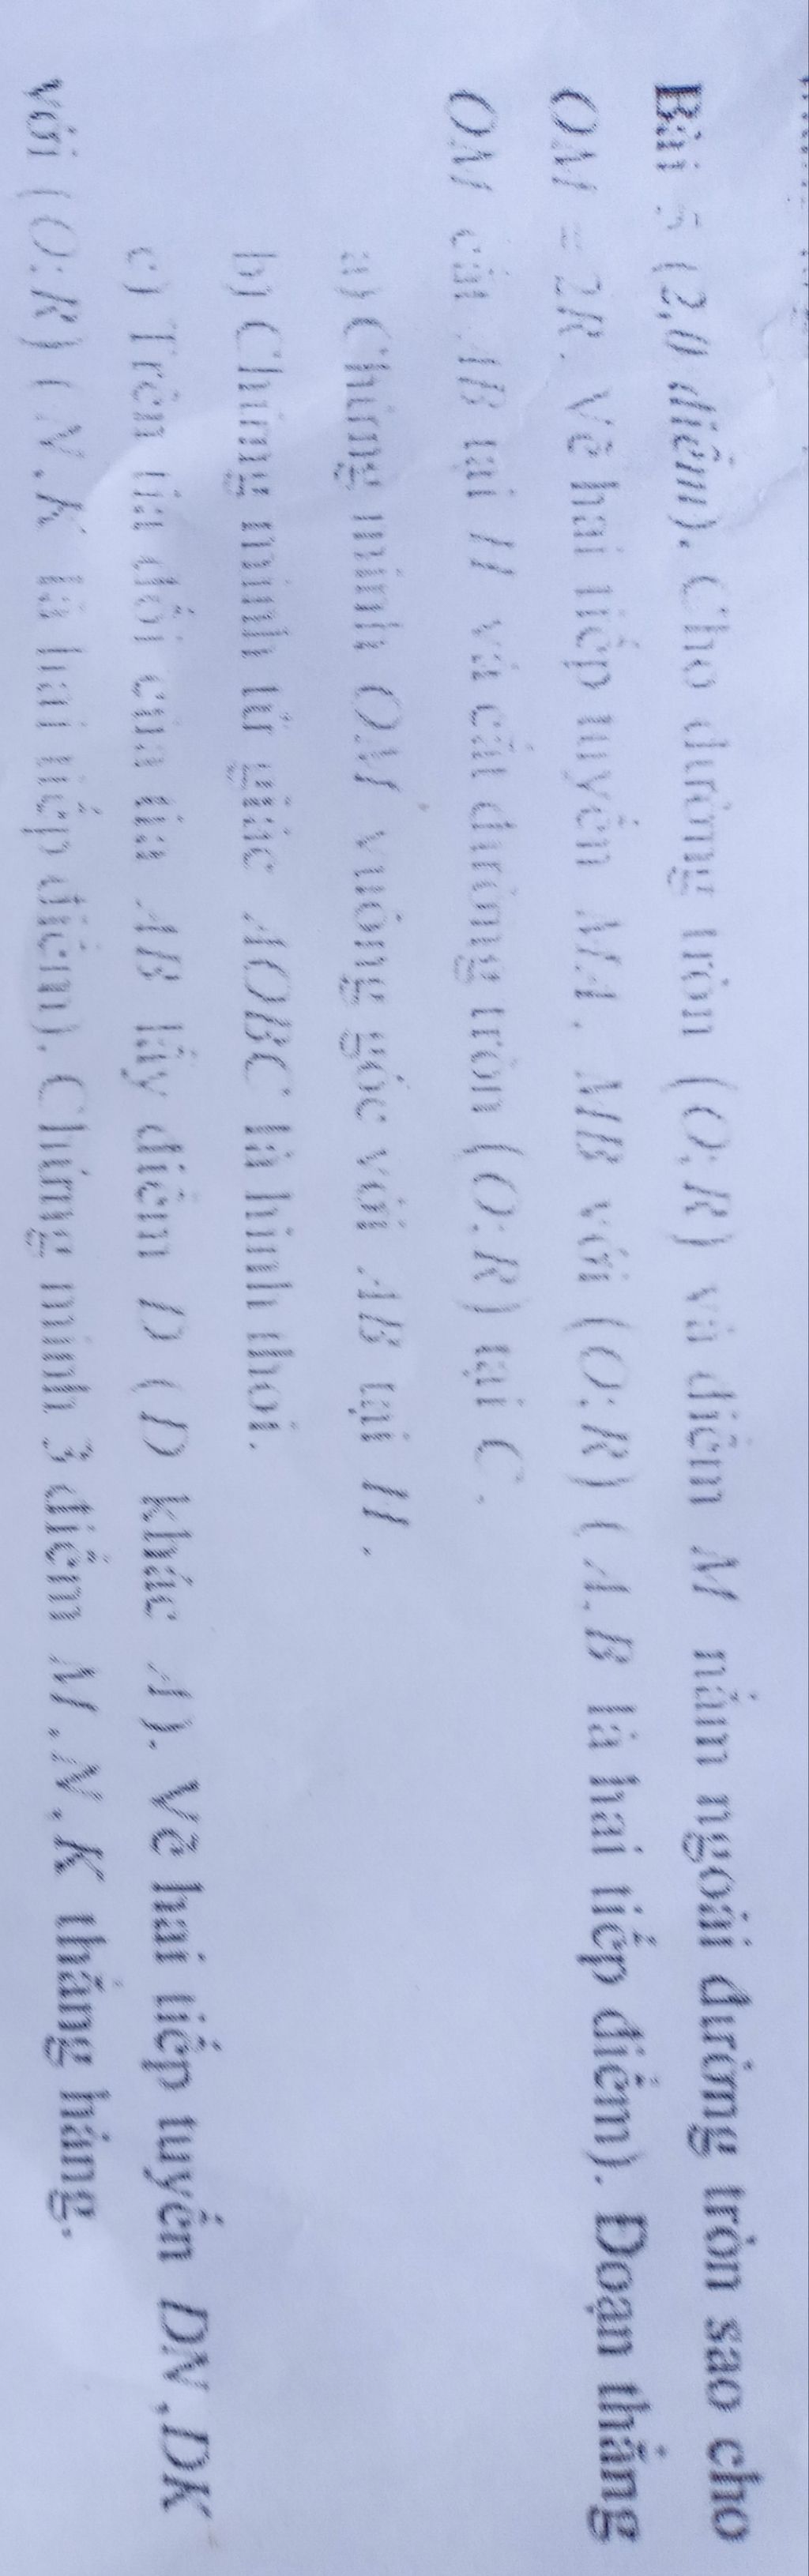 Bài 5 (2,0 điểm). Cho đường tròn (O;R) và điểm M nằm ngoài đường tròn sao cho
OM = 2R. Vẽ hai tiếp tuyến MA, MB với (O;R) (A,B là hai tiếp điểm). Đoạn thẳng
OM cắt AB tại H và cắt đường tròn (O;R) tại C.
a) Chứng minh OM vuông góc với AB tại H.
b) Chứng minh tứ giác AOBC là hình thoi.
c) Trên tia đối của tia AB lấy điểm D (D khác A). Vẽ hai tiếp tuyến DN,DK
với (O;R) (N,K là hai tiếp điểm). Chứng minh 3 điểm M,N,K thẳng hàng.